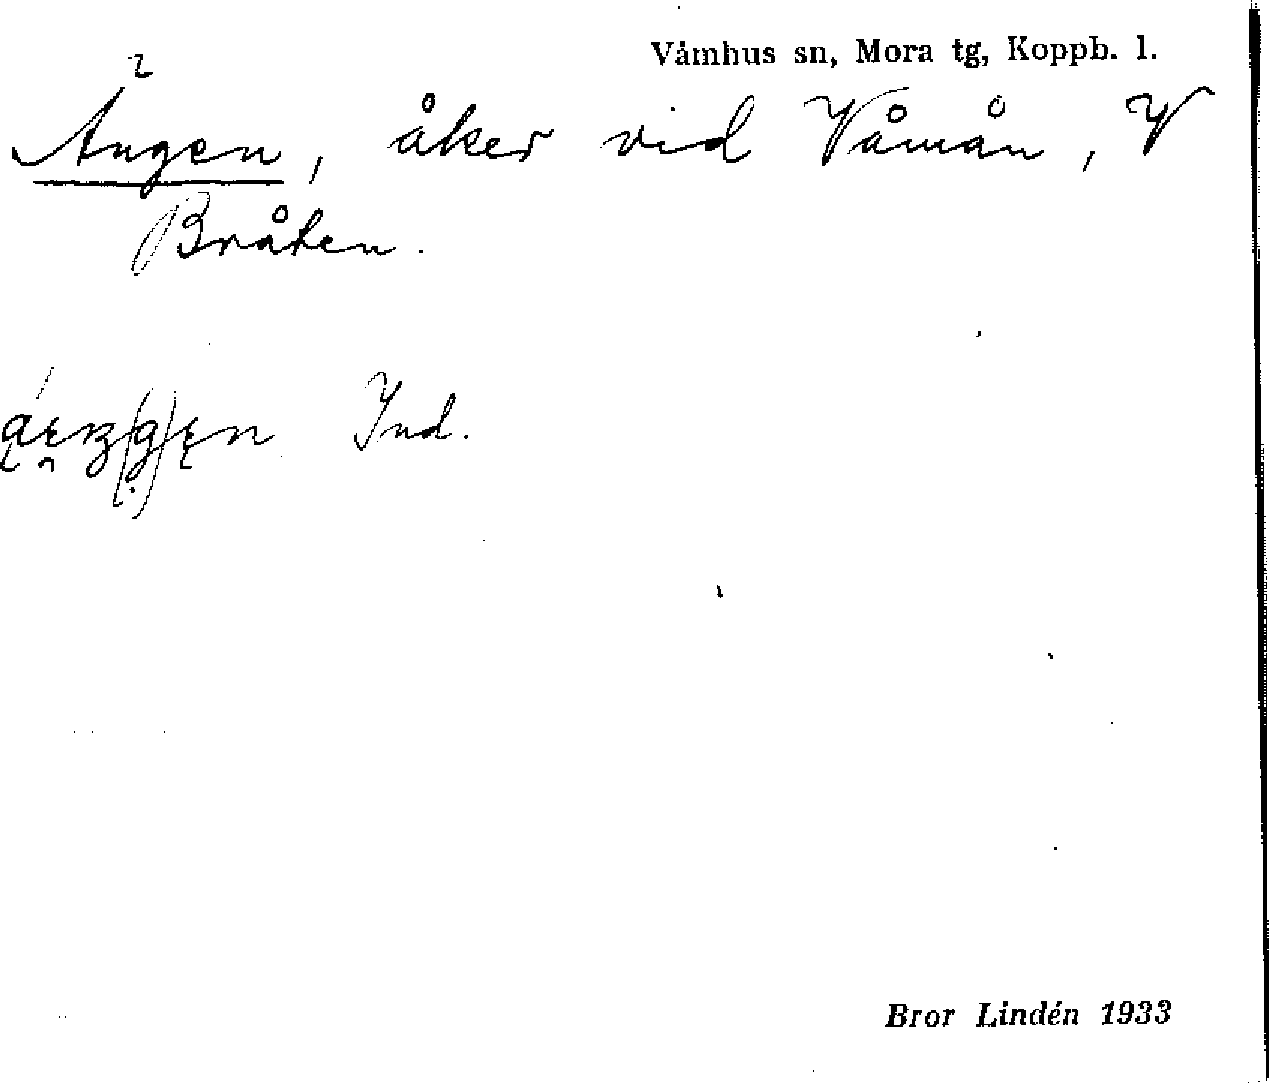 Våmhus sn, Mora tg, Koppb. l.
Ängen, åker vid Våmån, V
Bråten.
Ind.
Bror Lindén 1933